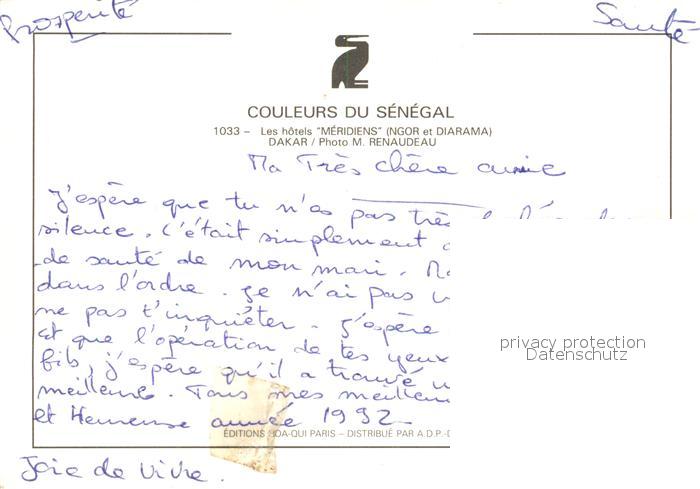 Prospérité
Santé
COULEURS DU SÉNÉGAL
1033 – Les hôtels "MÉRIDIENS" (NGOR et DIARAMA)
DAKAR / Photo M. RENAUDEAU
Ma Très chère amie
J'espère que tu n'es pas très
silence. C'était simplement
de santé de mon mari.
dans l'ordre. Je n'ai pas
ne pas t'inquiéter. J'espère
et que l'opération de tes yeux
fils, j'espère qu'il a trouvé
meilleure. Tous mes
et Heureuse année 1992
ÉDITIONS HOA-QUI PARIS – DISTRIBUÉ PAR A.D.P.-
Joie de vivre.
privacy protection
Datenschutz